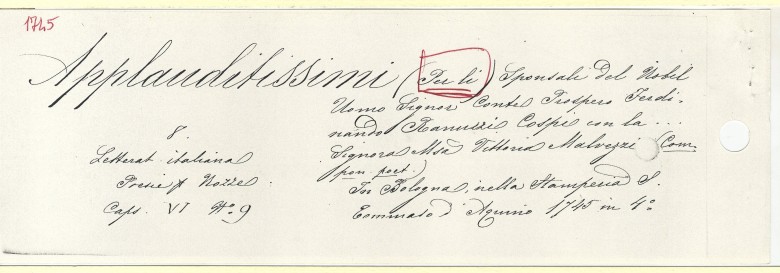 1745
Applauditissimi (Per li) Sponsali Del Nobil
Uomo Signor Conte Prospero Ferdi-
nando Ranuzzi Cospi con la ...
Signora Msa Vittoria Malvezzi (Com-
pon. poet.)
In Bologna, nella Stamperia S.
Tommaso d'Aquino 1745 in 4º
8.
Letterat. italiana
Poesie p. Nozze.
Caps. VI Nº 9